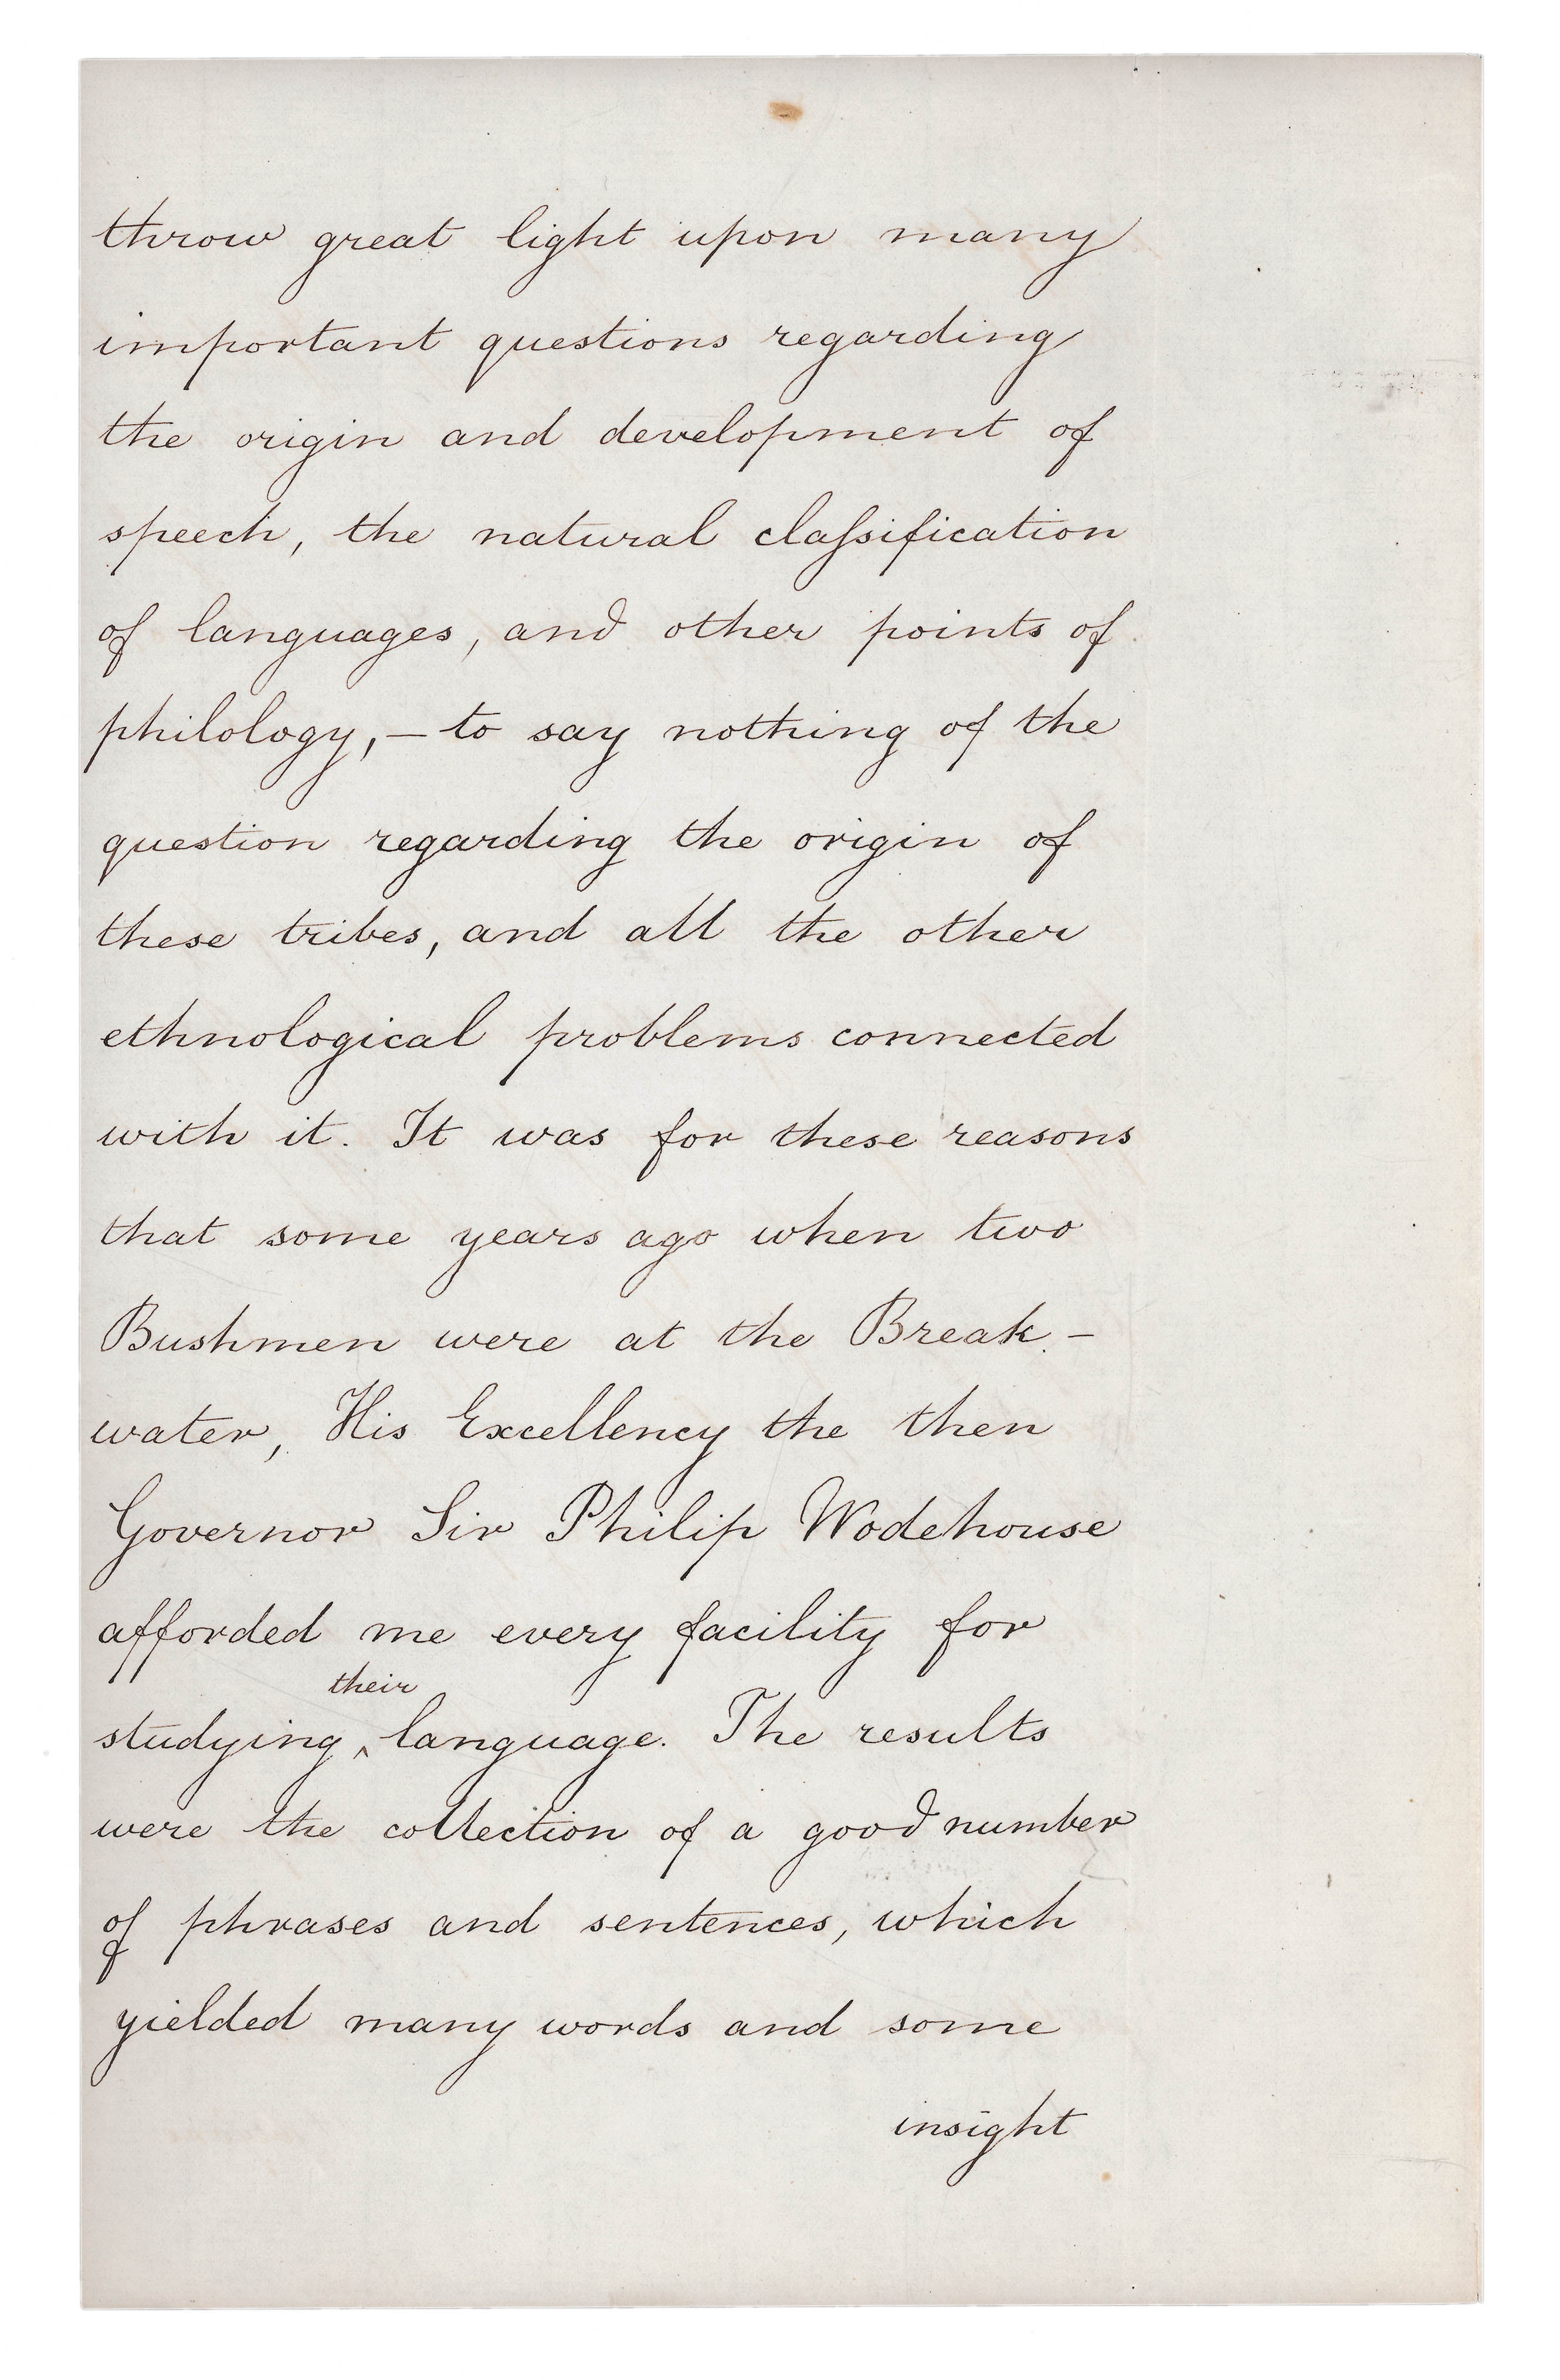 throw great light upon many
important questions regarding
the origin and development of
speech, the natural claſsification
of languages, and other points of
philology, — to say nothing of the
question regarding the origin of
these tribes, and all the other
ethnological problems connected
with it. It was for these reasons
that some years ago when two
Bushmen were at the Break-
water, His Excellency the then
Governor Sir Philip Wodehouse
afforded me every facility for
their
studying ‸ language. The results
were the collection of a good number
of phrases and sentences, which
yielded many words and some
insight